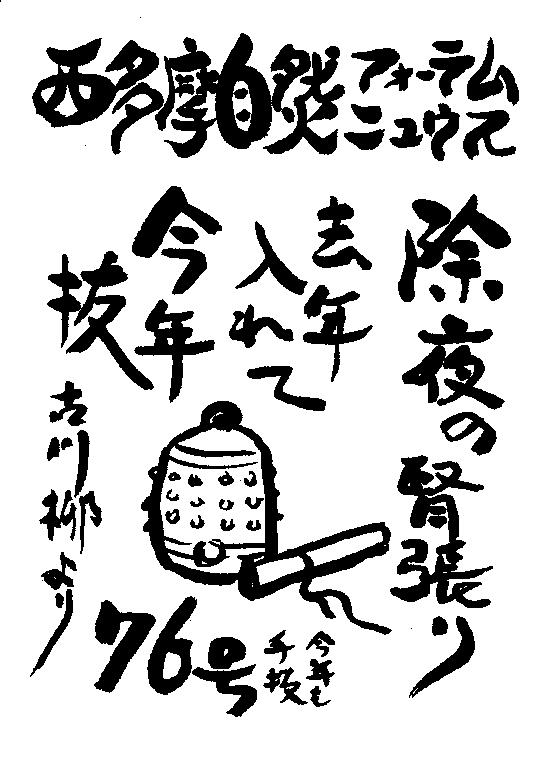 西多摩自然フォーラム
ニュウス
除夜の腎張り
去年
入れて
今年
抜
古川柳より
76号
今年も
手抜